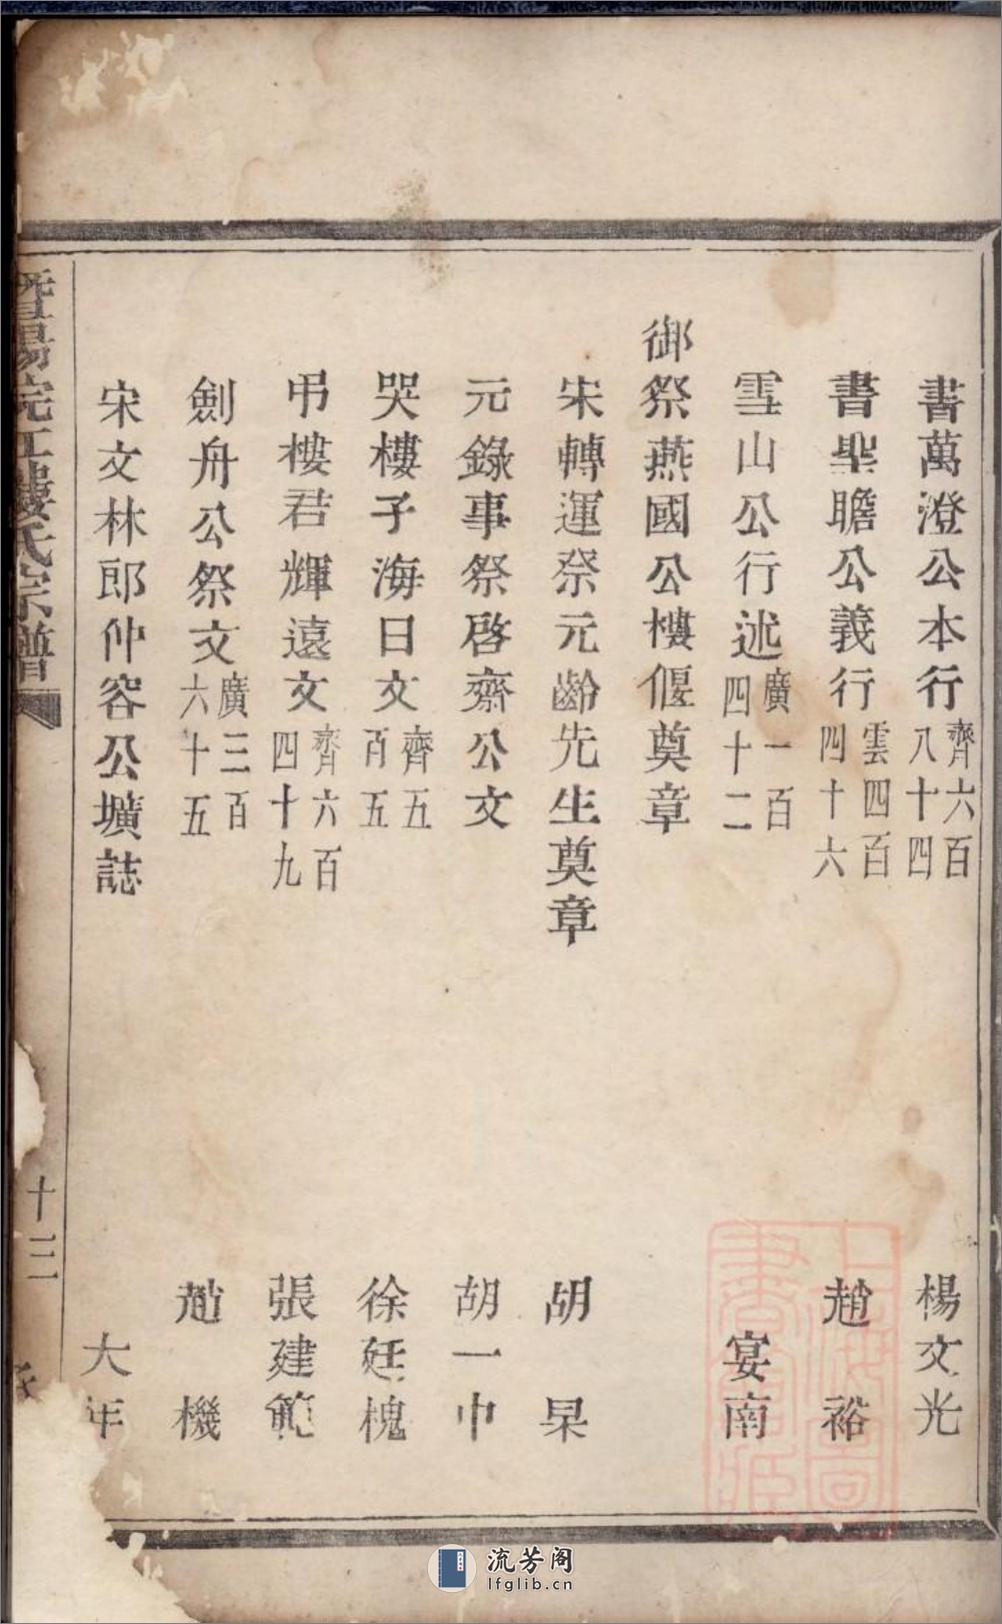 書萬澄公本行齊六百八十四 楊文光
書聖瞻公義行雲四百四十六 趙裕
雪山公行述廣一百四十二 宴南
御祭燕國公樓偃奠章
宋轉運祭元齡先生奠章 胡杲
元錄事祭啓齋公文 胡一中
哭樓子海日文齊五百五 徐廷槐
弔樓君輝遠文齊六百四十九 張建範
劍舟公祭文廣三百六十五 趙機
宋文林郎仲容公壙誌 大年
暨陽浣江樓氏宗譜
十三
流芳阁
lfglib.cn